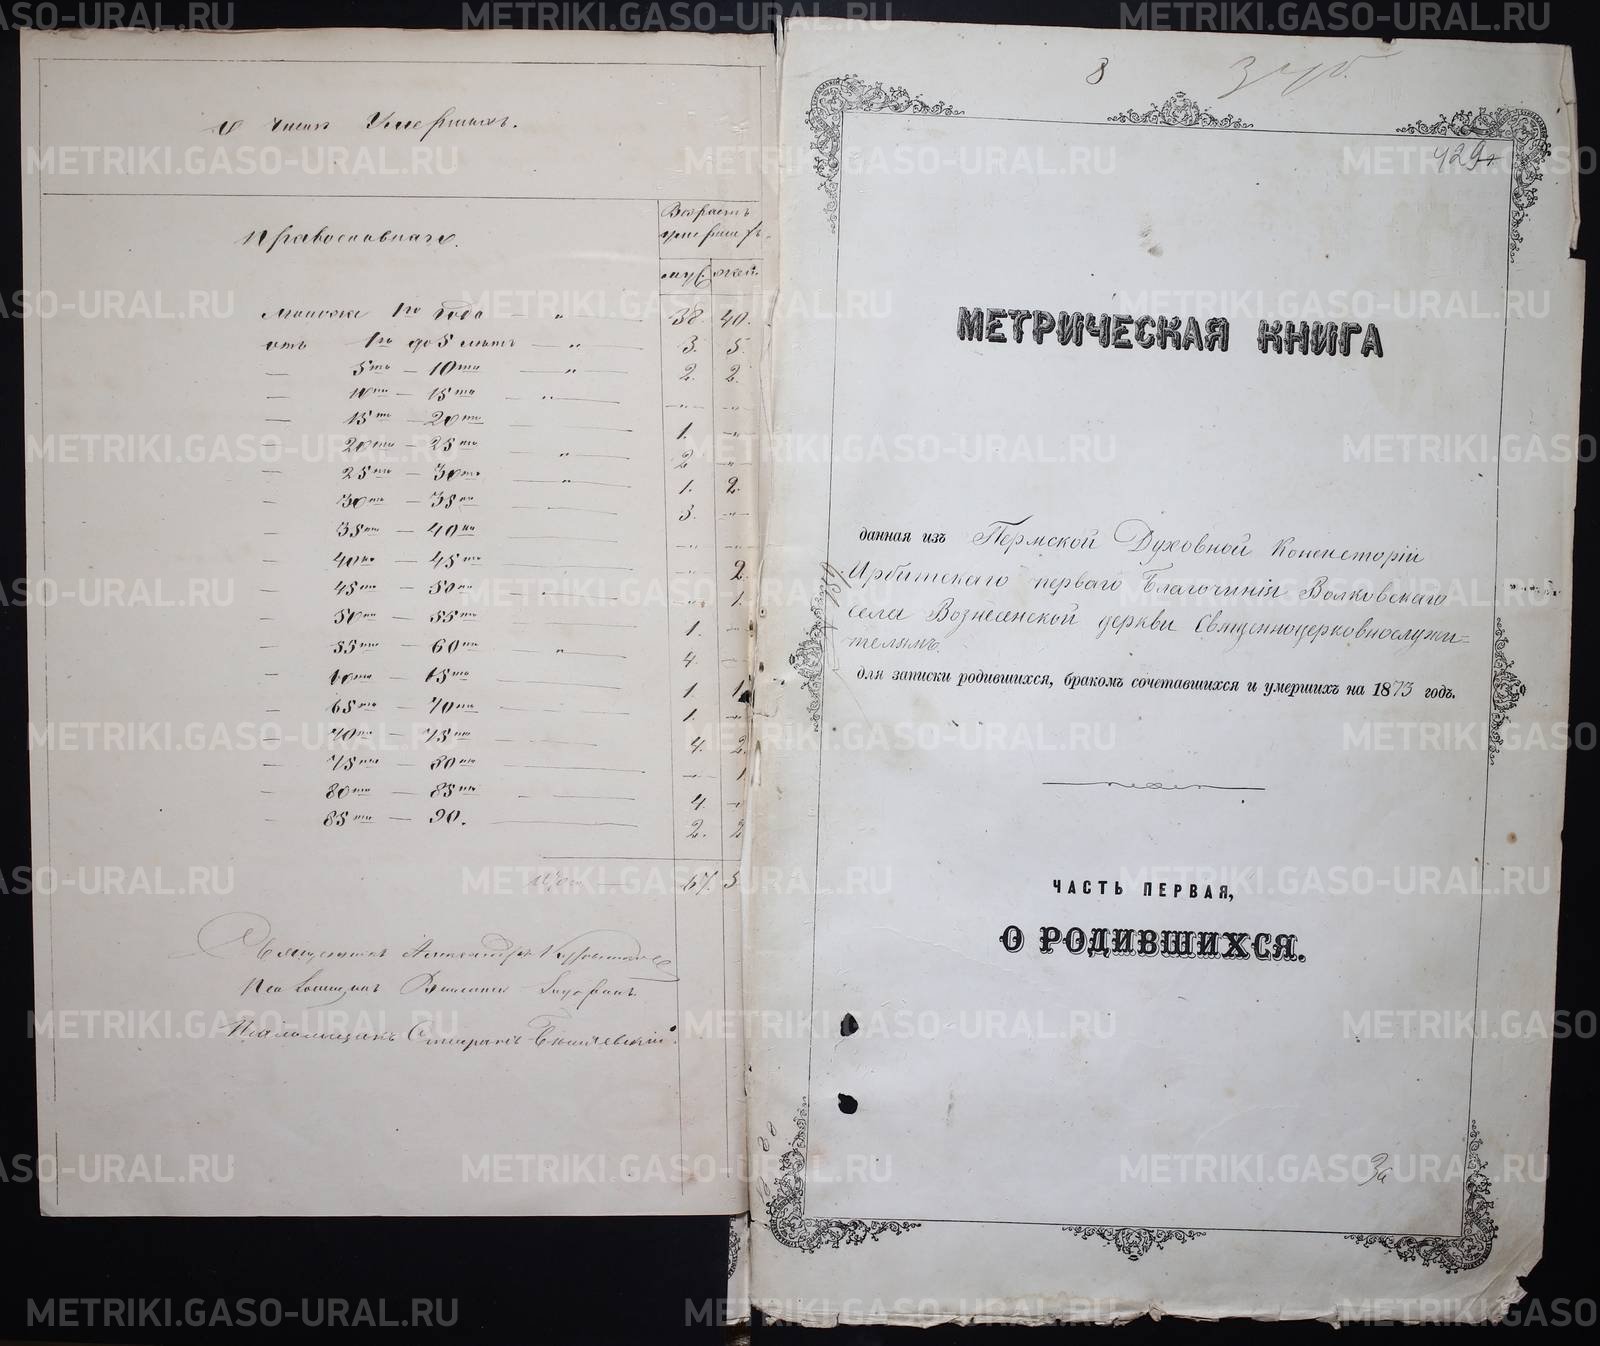 О числѣ Умершихъ.
Православнаго.
Возрастъ
умершихъ.
муж. жен.
Моложе 1го года — „ — 38. 40.
отъ 1го до 5 лѣтъ — „ — 3. 5.
— 5ти — 10ти — „ — 2. 2.
— 10ти — 15ти — „ — „ „
— 15ти — 20ти — 1. „
— 20ти — 25ти — „ — 2 „
— 25ти — 30ти — „ — 1. 2.
— 30ти — 35ти — 3. „
— 35ти — 40ти — „ „
— 40ти — 45ти — „ 2.
— 45ти — 50ти — „ 1.
— 50ти — 55ти — 1. „
— 55ти — 60ти — „ — 4. „
— 60ти — 65ти — 1. 1.
— 65ти — 70ти — 1. „
— 70ти — 75ти — 4. 2.
— 75ти — 80ти — „ 1
— 80ти — 85ти — 4. „
— 85ти — 90. — 2. 2
Итого — 67. 5
Священникъ Александръ
Псаломщикъ
Псаломщикъ
8
429
МЕТРИЧЕСКАЯ КНИГА
данная изъ Пермской Духовной Консисторіи
Ирбитскаго перваго Благочинія Волковскаго
села Вознесенской церкви Священноцерковнослужи=
телямъ.
для записки родившихся, бракомъ сочетавшихся и умершихъ на 1873 годъ.
ЧАСТЬ ПЕРВАЯ,
О РОДИВШИХСЯ.
METRIKI.GASO-URAL.RU